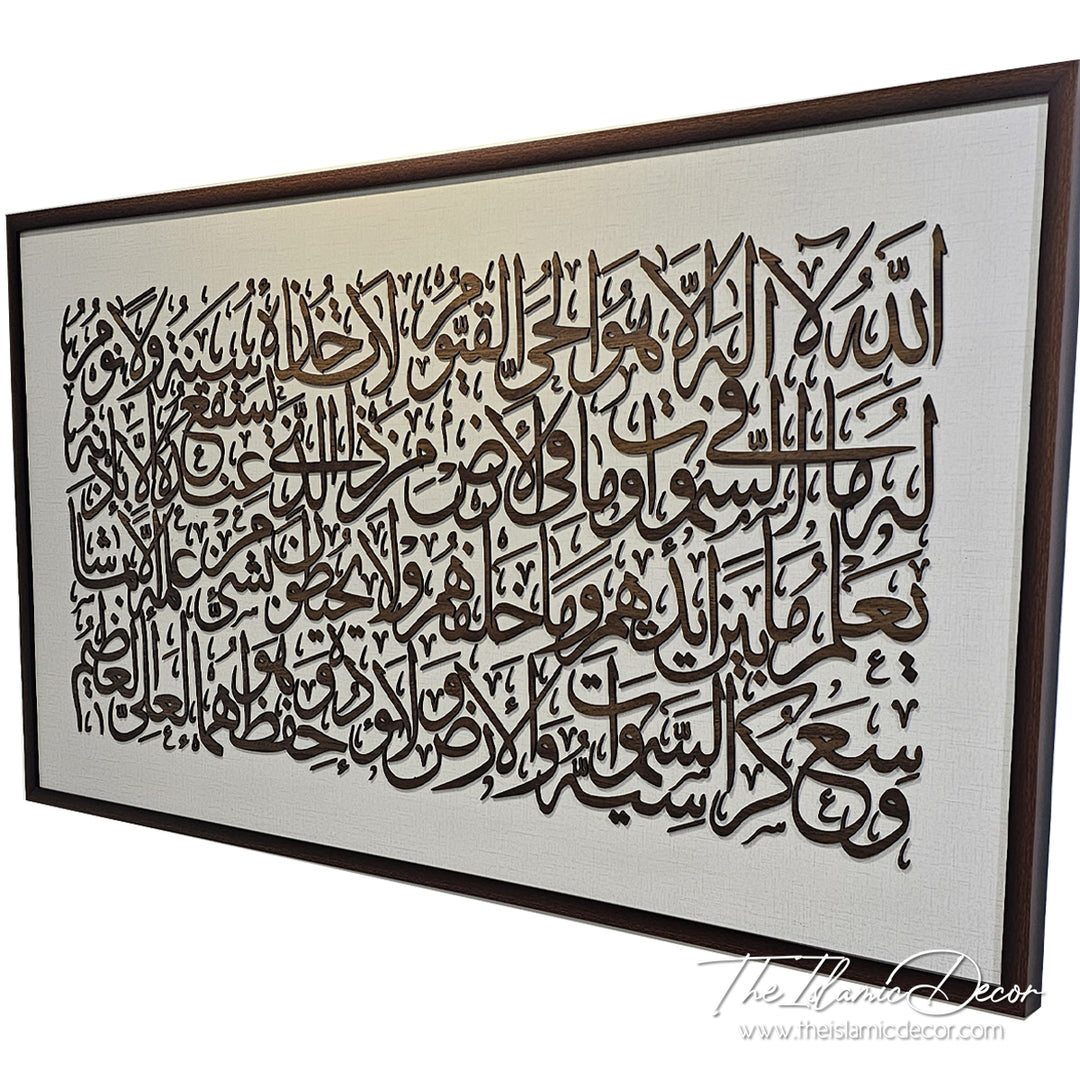 الله لا إله إلا هو الحي القيوم لا تأخذه سنة ولا نوم
له ما في السموات وما في الأرض من ذا الذي يشفع عنده إلا بإذنه
يعلم ما بين أيديهم وما خلفهم ولا يحيطون بشئ من علمه إلا بما شا
وسع كرسيه السموات والأرض ولا يؤده حفظهما وهو العلي العظيم
The Islamic Decor
www.theislamicdecor.com